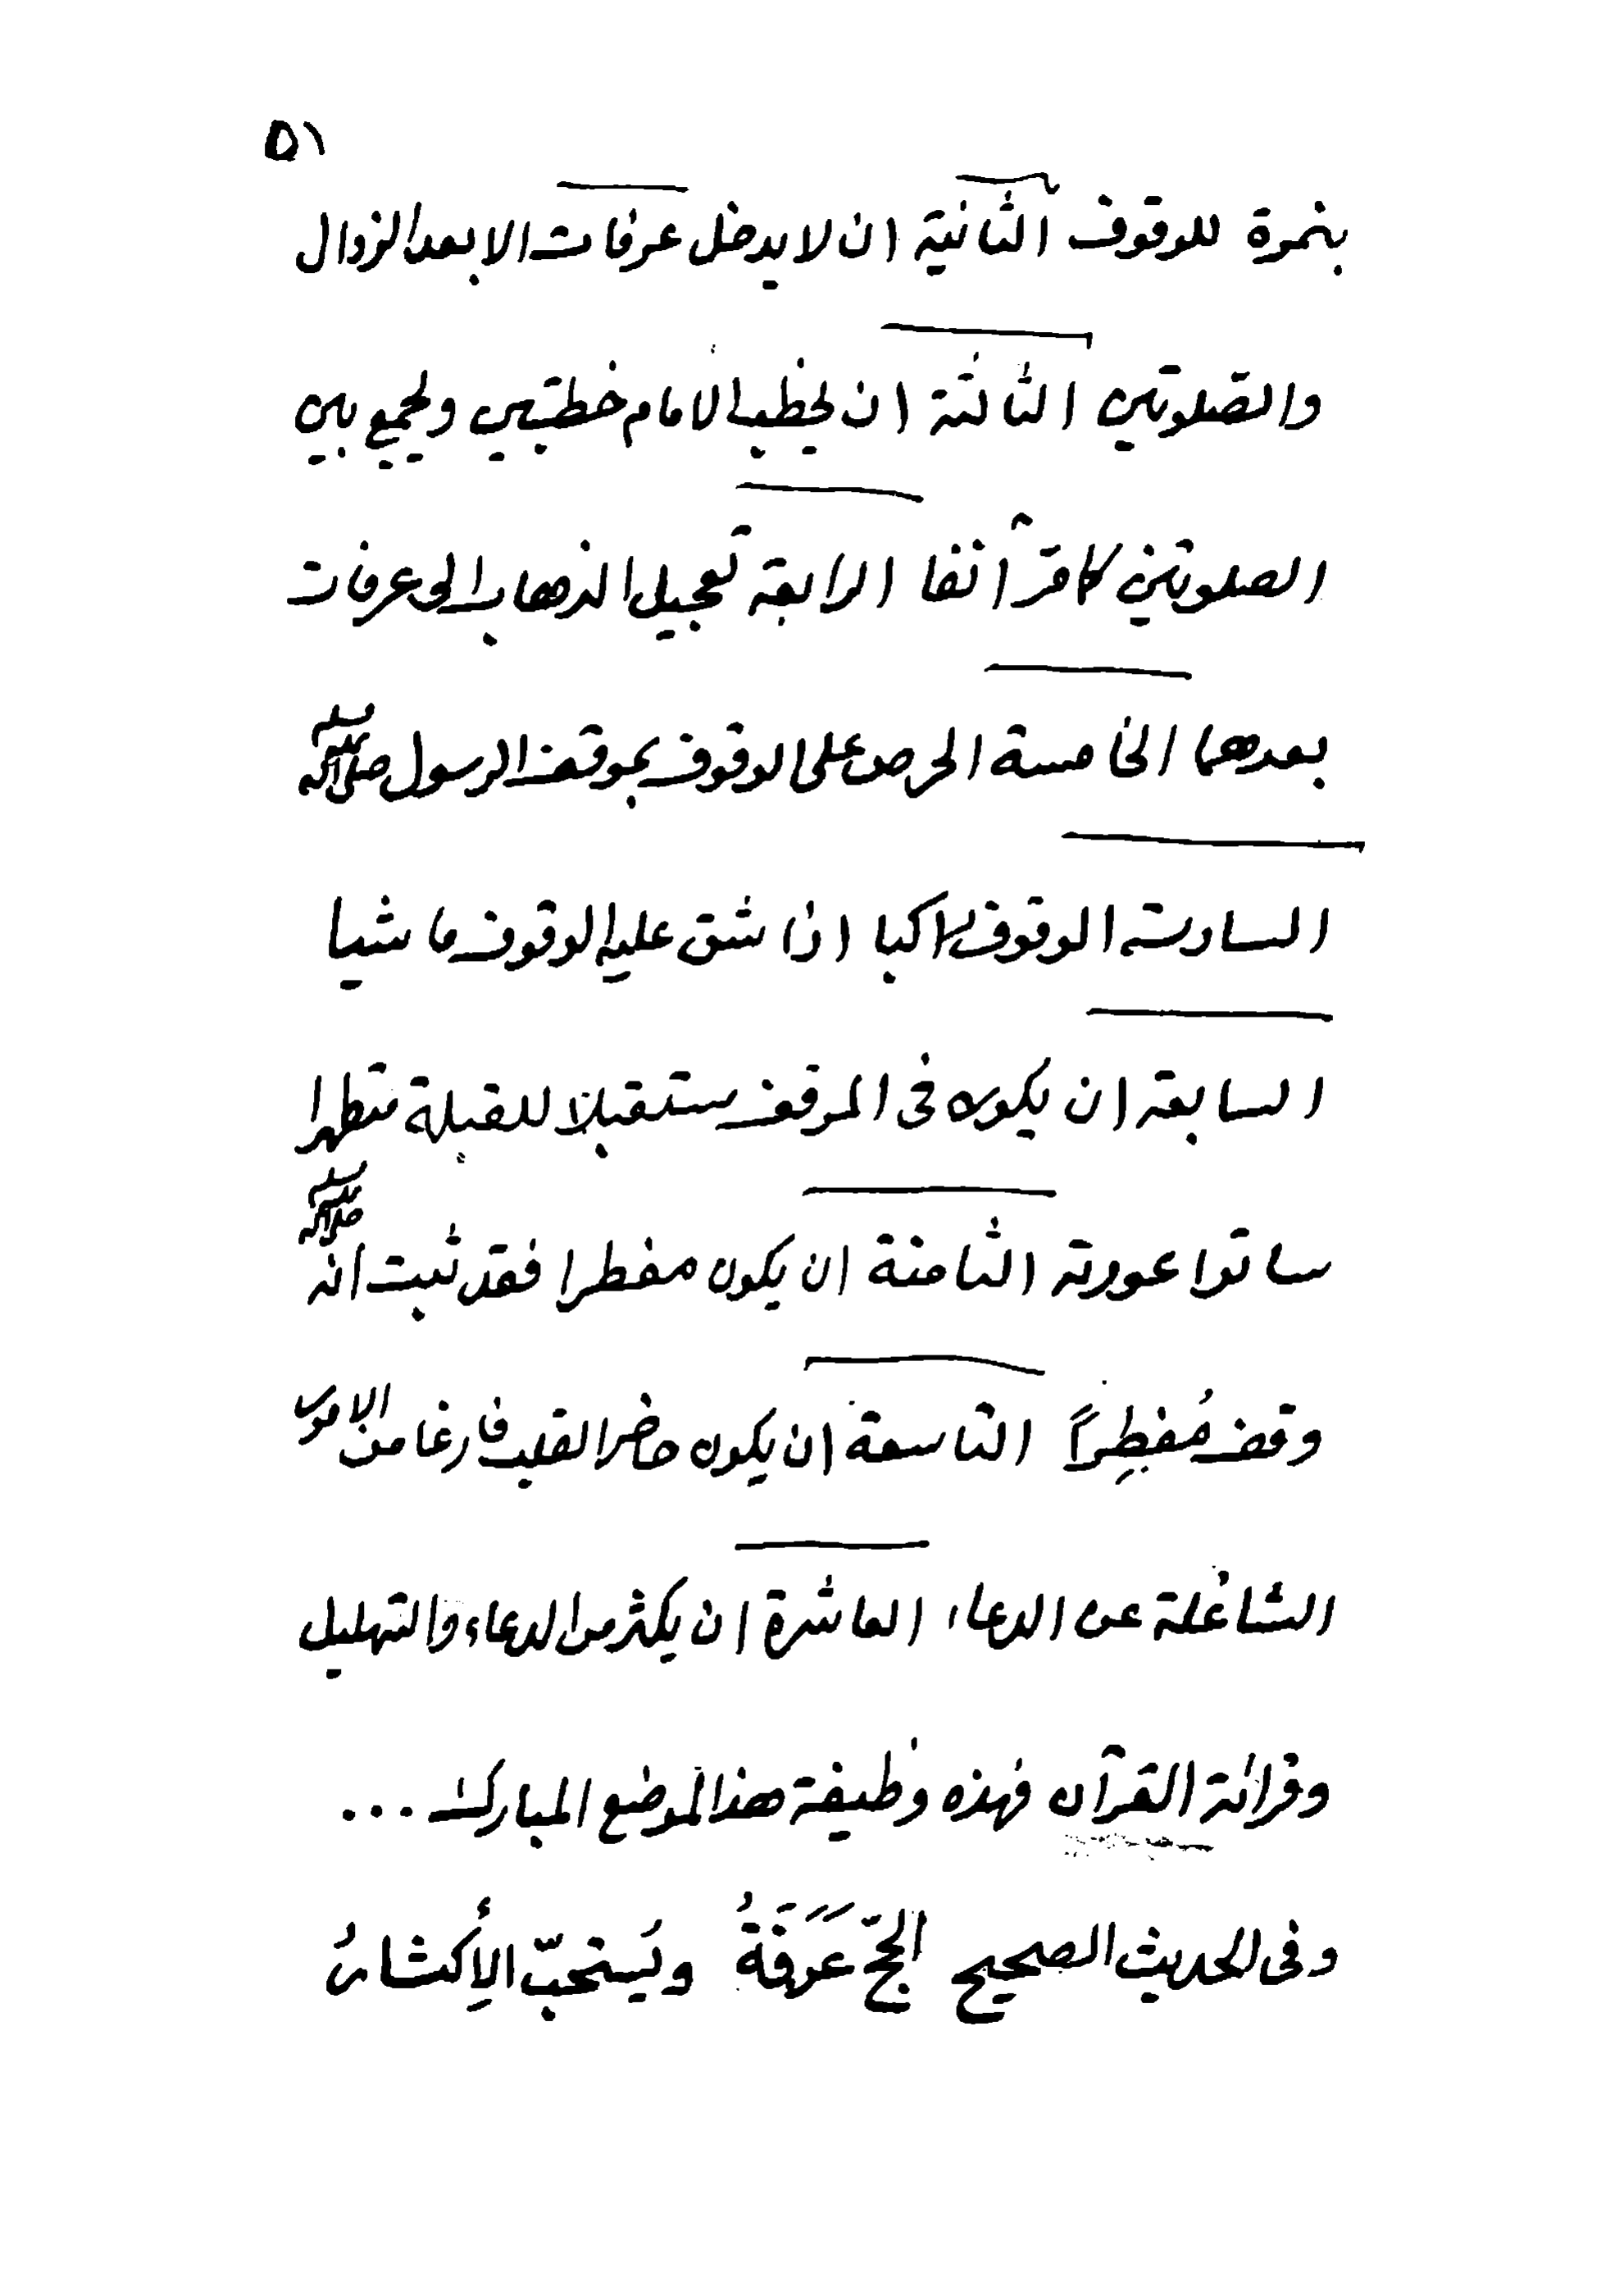 ٥١
بنمرة للوقوف الثانية ان لا يدخل عرفات الا بعد الزوال
والصّلوتين الثالثة ان يخطب الامام خطبتين ويجمع بين
الصلوتين كما مرّ آنفا الرابعة تعجيل الذهاب الى عرفات
بعدهما الخامسة الحرص على الوقوف بموقف الرسول صلى الله عليه وسلم
السادسة الوقوف راكبا اذا شق عليه الوقوف ماشيا
السابعة ان يكون فى الموقف مستقبلا للقبلة متطهرا
ساترا عورته الثامنة ان يكون مفطرا فقد ثبت انه صلى الله عليه وسلم
وقف مُفطِراً التاسعة ان يكون حاضر القلب فارغا من الامور
الشاغلة عن الدعاء العاشرة ان يكثر من الدعاء والتهليل
وقرائة القرآن فهذه وظيفة هذا الموضع المبارك ...
وفى الحديث الصحيح الحجّ عَرَفَةُ ويُستحبّ الإكثارُ